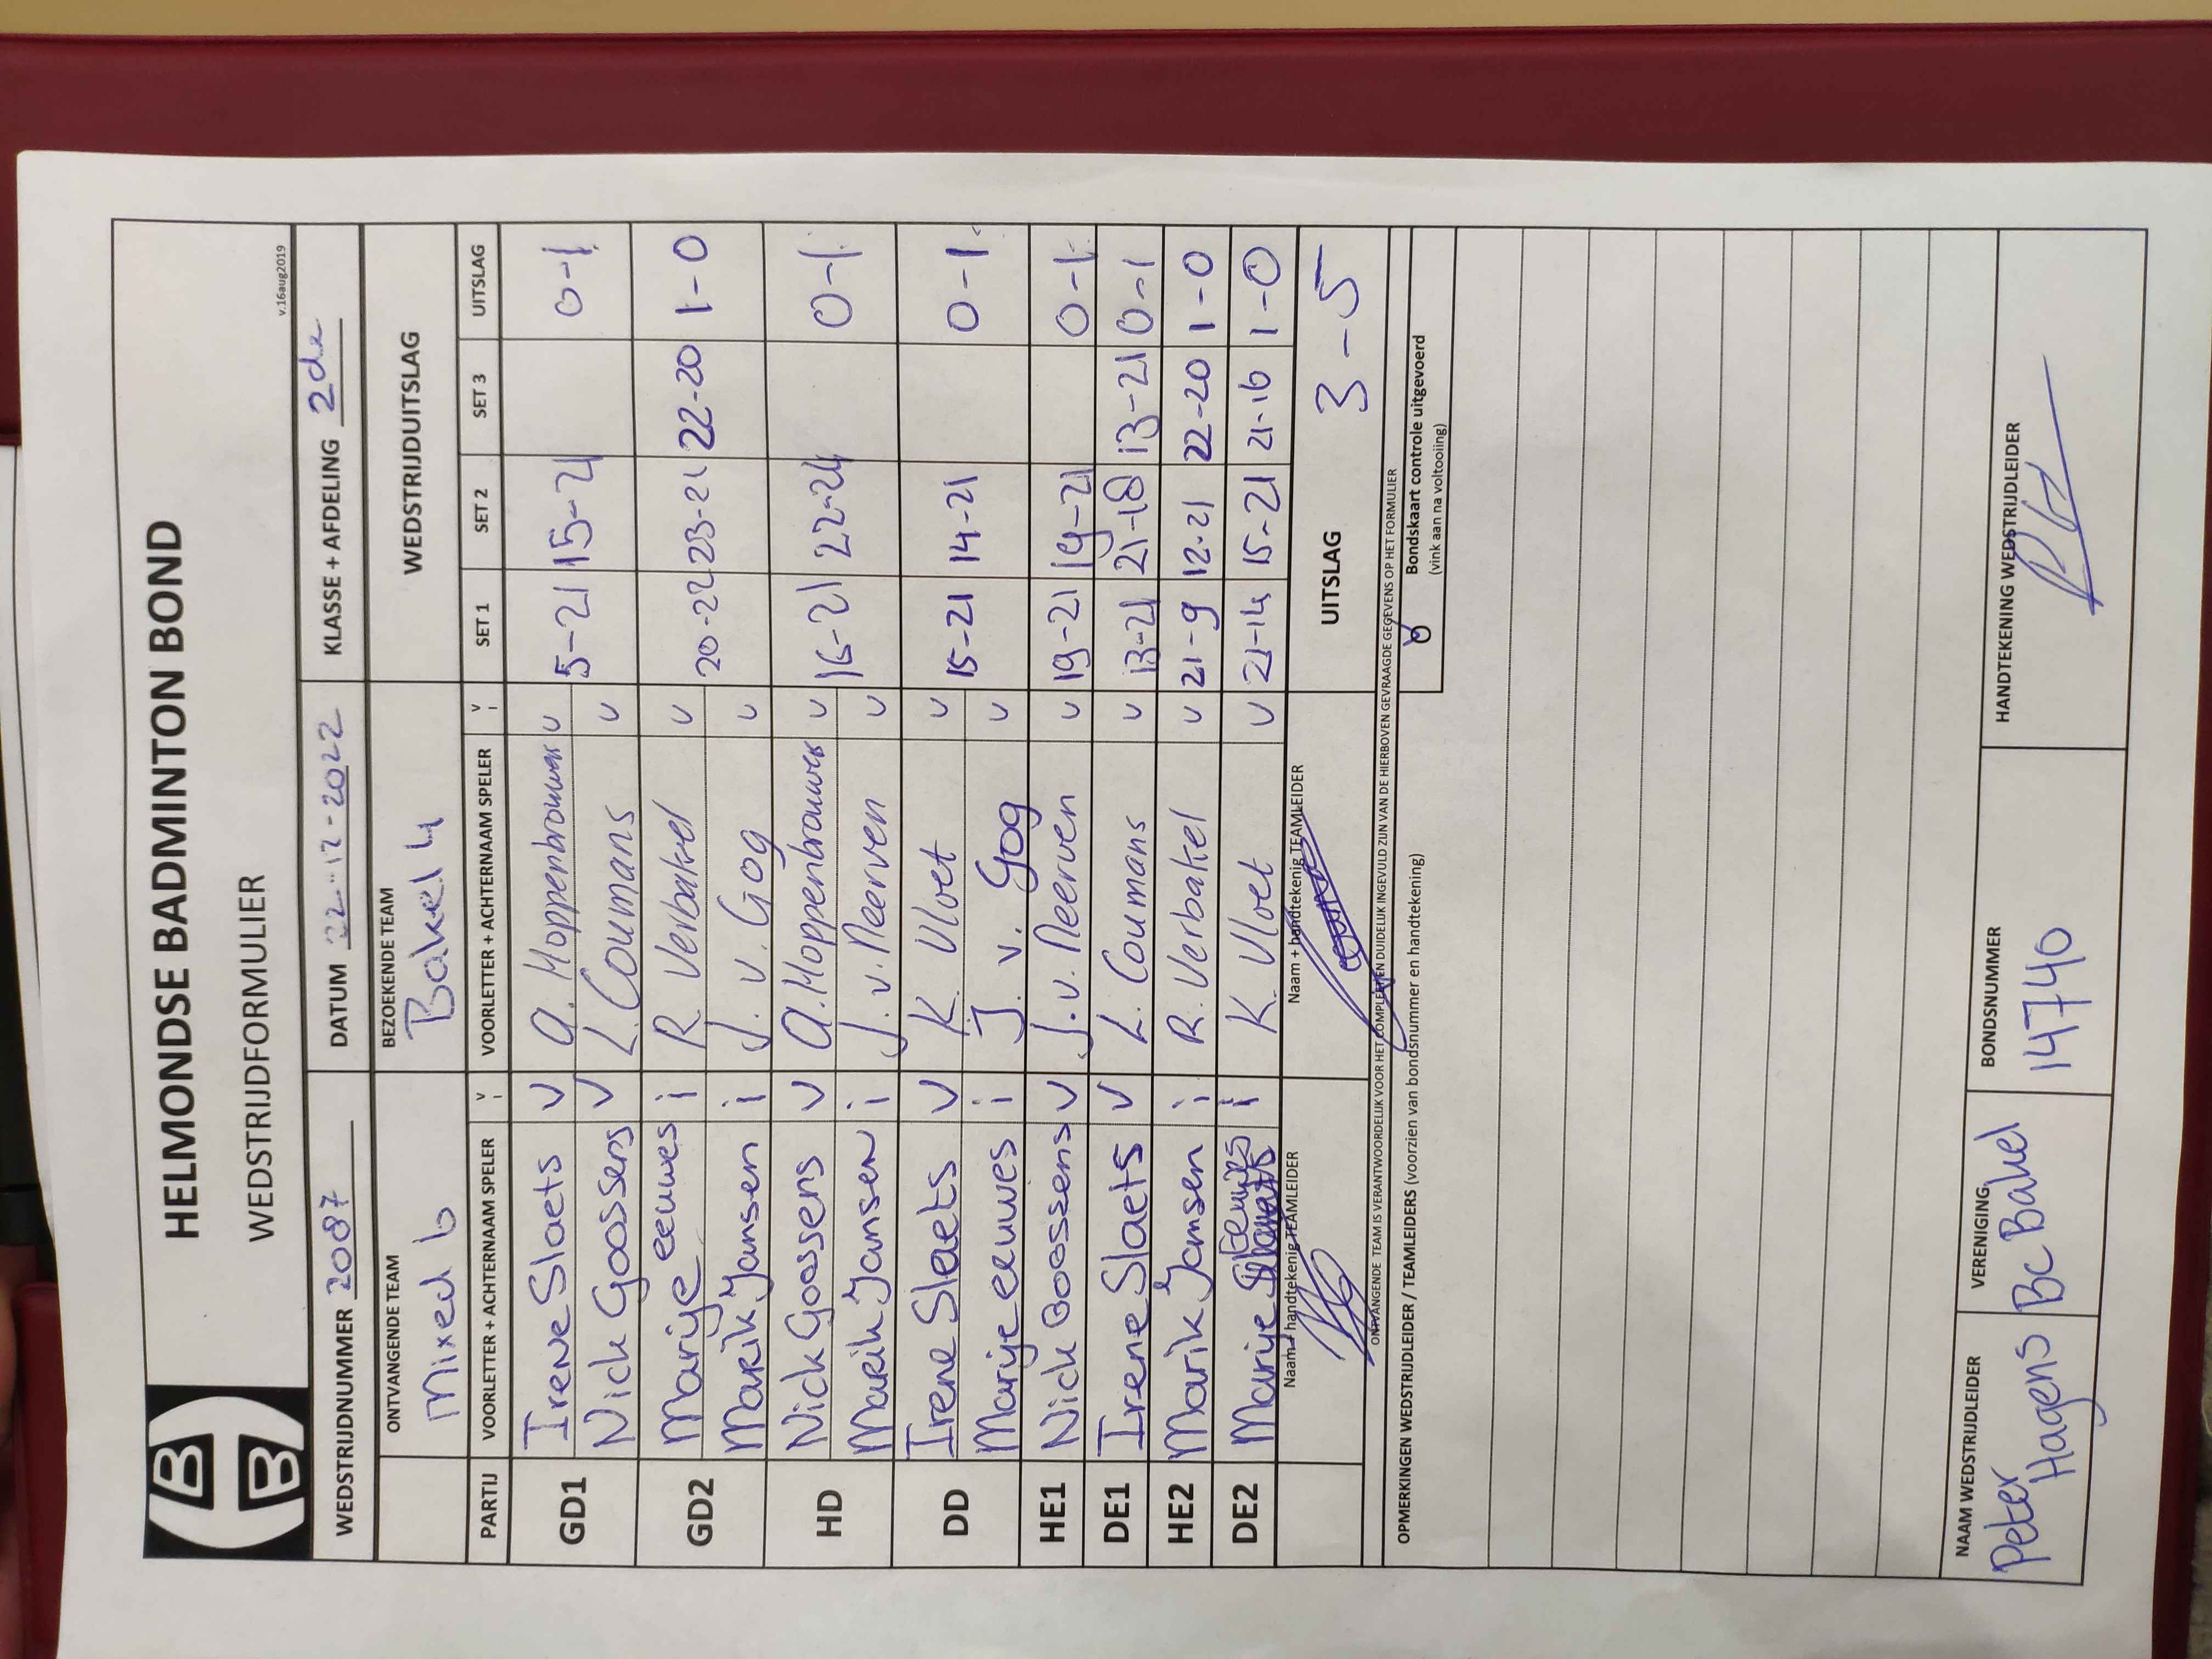 HELMONDSE BADMINTON BOND
WEDSTRIJDFORMULIER
v.16aug2019
WEDSTRIJDNUMMER 2087 DATUM 22-12-2022 KLASSE + AFDELING 2de
ONTVANGENDE TEAM BEZOEKENDE TEAM WEDSTRIJDUITSLAG
Mixed 6 Bakel 4
PARTIJ VOORLETTER + ACHTERNAAM SPELER V i VOORLETTER + ACHTERNAAM SPELER V i SET 1 SET 2 SET 3 UITSLAG
GD1 Irene Slaets V A. Hoppenbrouwers v 5-21 15-21 0-1
Nick Goossens V L. Coumans v
GD2 Marije eeuwes i R Verbakel v 20-22 23-21 22-20 1-0
Marik Jansen i J. v. Gog v
HD Nick Goossens V A. Hoppenbrouwers v 16-21 22-24 0-1
Marik Jansen i J. v. Neerven v
DD Irene Slaets V K. Vloet v 15-21 14-21 0-1
Marije eeuwes i J. v. Gog v
HE1 Nick Goossens V J. v. Neerven v 19-21 19-21 0-1
DE1 Irene Slaets V L. Coumans v 13-21 21-18 13-21 0-1
HE2 Marik Jansen i R. Verbakel v 21-9 12-21 22-20 1-0
DE2 Marije Eeuwes i K. Vloet v 21-14 15-21 21-16 1-0
Naam + handtekenig TEAMLEIDER Naam + handtekenig TEAMLEIDER UITSLAG 3-5
ONTVANGENDE TEAM IS VERANTWOORDELIJK VOOR HET COMPLEET EN DUIDELIJK INGEVULD ZIJN VAN DE HIERBOVEN GEVRAAGDE GEGEVENS OP HET FORMULIER
OPMERKINGEN WEDSTRIJDLEIDER / TEAMLEIDERS (voorzien van bondsnummer en handtekening)
Bondskaart controle uitgevoerd
(vink aan na voltooiing)
NAAM WEDSTRIJDLEIDER VERENIGING BONDSNUMMER HANDTEKENING WEDSTRIJDLEIDER
Peter Hagens BC Bakel 14740